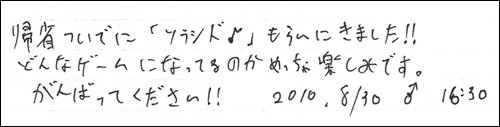 帰省ついでに「ソラシド♪」もらいにきました!!
どんなゲームになってるのかめっちゃ楽しみです。
がんばってください!! 2010. 8/30 ♂ 16:30